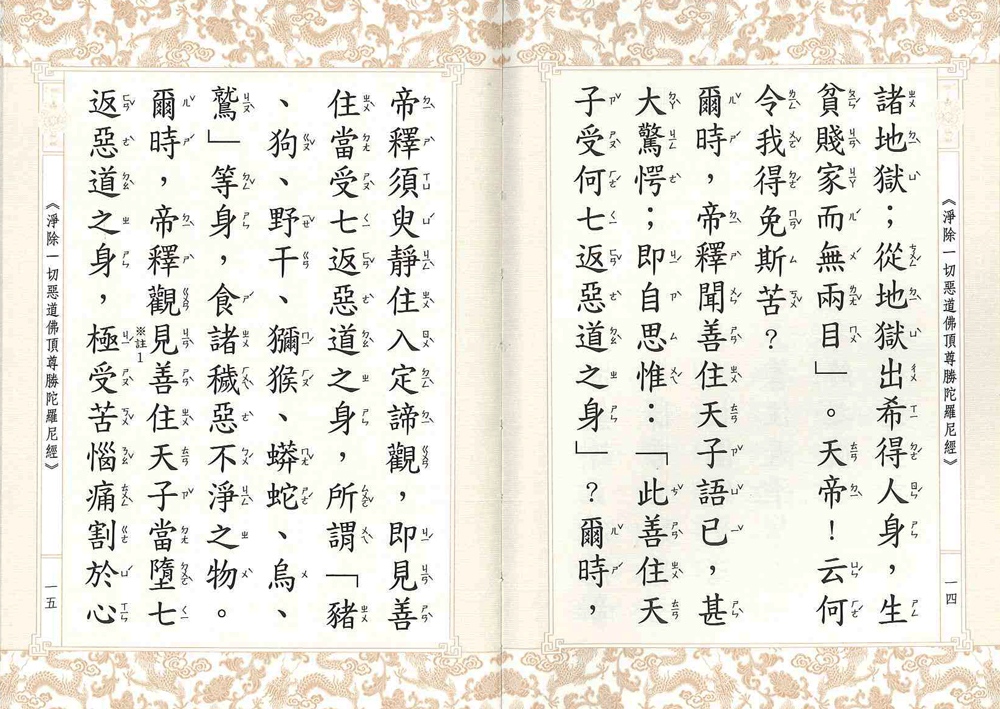 《淨除一切惡道佛頂尊勝陀羅尼經》
一四
諸地獄；從地獄出希得人身，生
貧賤家而無兩目」。天帝！云何
令我得免斯苦？
爾時，帝釋聞善住天子語已，甚
大驚愕；即自思惟：「此善住天
子受何七返惡道之身」？爾時，
帝釋須臾靜住入定諦觀，即見善
住當受七返惡道之身，所謂「豬
、狗、野干、獼猴、蟒蛇、烏、
鷲」等身，食諸穢惡不淨之物。
爾時，帝釋觀※註1見善住天子當墮七
返惡道之身，極受苦惱痛割於心
《淨除一切惡道佛頂尊勝陀羅尼經》
一五